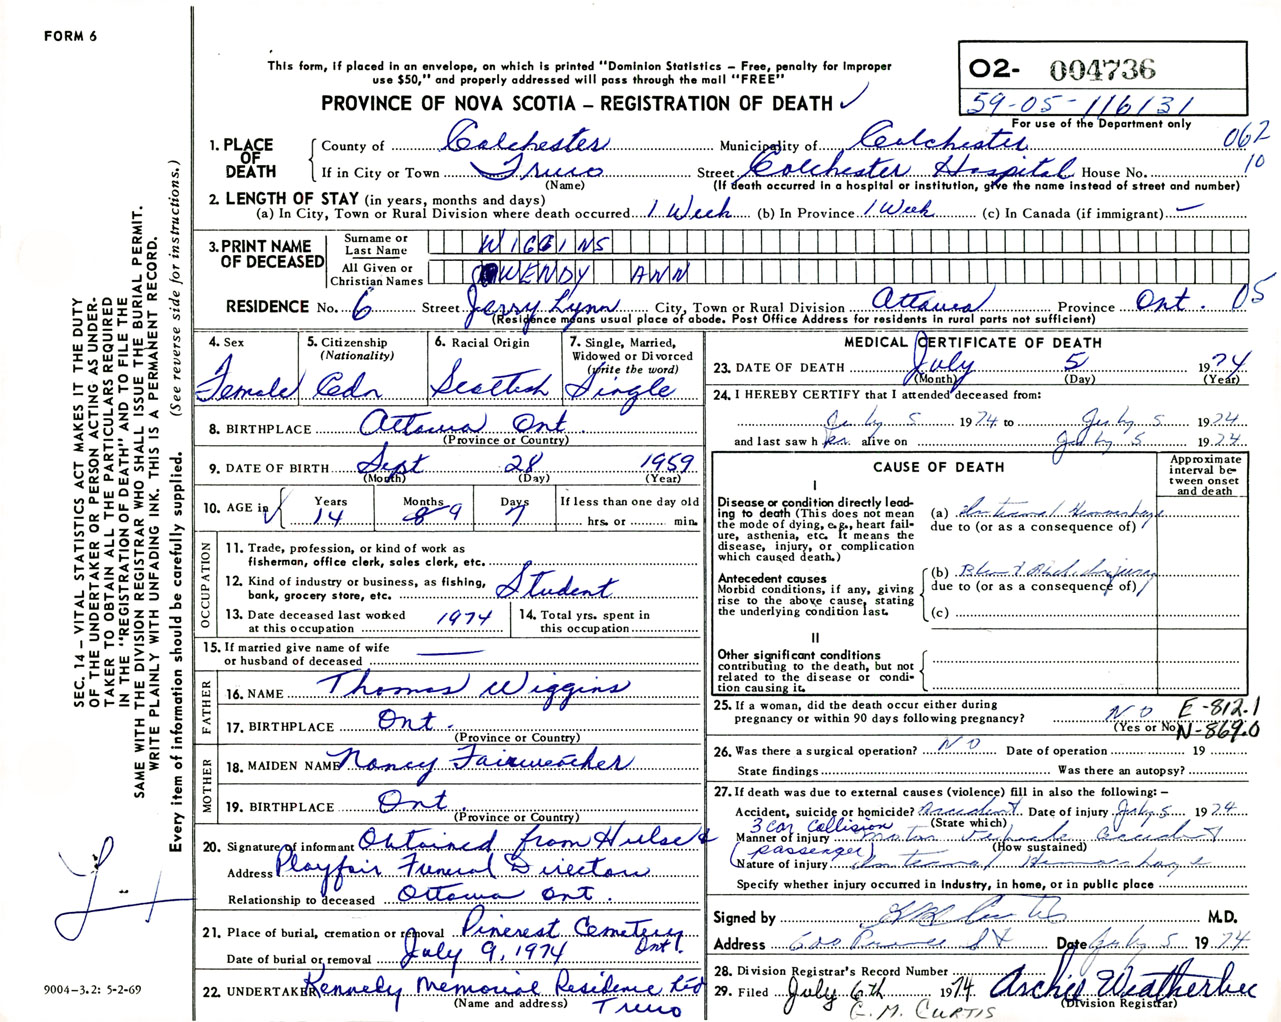 FORM 6
This form, if placed in an envelope, on which is printed "Dominion Statistics – Free, penalty for improper
use $50," and properly addressed will pass through the mail "FREE"
PROVINCE OF NOVA SCOTIA – REGISTRATION OF DEATH ✓
02- 004736
59-05-116131
For use of the Department only
062
10
1. PLACE OF DEATH
County of Colchester Municipality of Colchester
If in City or Town Truro Street Colchester Hospital House No.
(Name) (If death occurred in a hospital or institution, give the name instead of street and number)
2. LENGTH OF STAY (in years, months and days)
(a) In City, Town or Rural Division where death occurred 1 Week (b) In Province 1 Week (c) In Canada (if immigrant) —
3. PRINT NAME OF DECEASED
Surname or Last Name WIGGINS
All Given or Christian Names WENDY ANN
RESIDENCE No. 6 Street Jerry Lynn City, Town or Rural Division Ottawa Province Ont. 05
(Residence means usual place of abode. Post Office Address for residents in rural parts not sufficient)
4. Sex Female
5. Citizenship (Nationality) Cdn
6. Racial Origin Scottish
7. Single, Married, Widowed or Divorced (write the word) Single
8. BIRTHPLACE Ottawa Ont.
(Province or Country)
9. DATE OF BIRTH Sept 28 1959
(Month) (Day) (Year)
10. AGE in Years 14 Months 8 9 Days 7 If less than one day old hrs. or min.
OCCUPATION
11. Trade, profession, or kind of work as
fisherman, office clerk, sales clerk, etc.
12. Kind of industry or business, as fishing,
bank, grocery store, etc. Student
13. Date deceased last worked
at this occupation 1974
14. Total yrs. spent in
this occupation
15. If married give name of wife
or husband of deceased —
FATHER
16. NAME Thomas Wiggins
17. BIRTHPLACE Ont.
(Province or Country)
MOTHER
18. MAIDEN NAME Nancy Fairweather
19. BIRTHPLACE Ont.
(Province or Country)
20. Signature of informant Obtained from Hulse &
Address Playfair Funeral Directors
Relationship to deceased Ottawa Ont.
21. Place of burial, cremation or removal Pinecrest Cemetery Ont.
Date of burial or removal July 9, 1974
22. UNDERTAKER Kennedy Memorial Residence Ltd
(Name and address) Truro
MEDICAL CERTIFICATE OF DEATH
23. DATE OF DEATH July 5 1974
(Month) (Day) (Year)
24. I HEREBY CERTIFY that I attended deceased from:
July 5 1974 to July 5 1974
and last saw her alive on July 5 1974
CAUSE OF DEATH
Approximate interval between onset and death
I
Disease or condition directly leading to death (This does not mean the mode of dying, e.g., heart failure, asthenia, etc. It means the disease, injury, or complication which caused death.)
(a) Internal Hemorrhage
due to (or as a consequence of)
Antecedent causes
Morbid conditions, if any, giving rise to the above cause, stating the underlying condition last.
(b) Blunt Injury
due to (or as a consequence of)
(c)
II
Other significant conditions
contributing to the death, but not related to the disease or condition causing it.
25. If a woman, did the death occur either during
pregnancy or within 90 days following pregnancy? NO
(Yes or No)
E-812.1
N-869.0
26. Was there a surgical operation? NO Date of operation 19
State findings Was there an autopsy?
27. If death was due to external causes (violence) fill in also the following: –
Accident, suicide or homicide? Accident Date of injury July 5 1974
(State which)
3 car collision
Manner of injury Motor Vehicle accident
(passenger) (How sustained)
Nature of injury Internal Hemorrhage
Specify whether injury occurred in Industry, in home, or in public place
Signed by M.D.
Address 600 Prince St Date July 5 1974
28. Division Registrar's Record Number
29. Filed July 6th 1974. Archie Weatherbee
(Division Registrar)
E. M. CURTIS
SEC. 14 – VITAL STATISTICS ACT MAKES IT THE DUTY
OF THE UNDERTAKER OR PERSON ACTING AS UNDER-
TAKER TO OBTAIN ALL THE PARTICULARS REQUIRED
IN THE "REGISTRATION OF DEATH" AND TO FILE THE
SAME WITH THE DIVISION REGISTRAR WHO SHALL ISSUE THE BURIAL PERMIT.
WRITE PLAINLY WITH UNFADING INK. THIS IS A PERMANENT RECORD.
Every item of information should be carefully supplied. (See reverse side for instructions.)
9004-3.2: 5-2-69